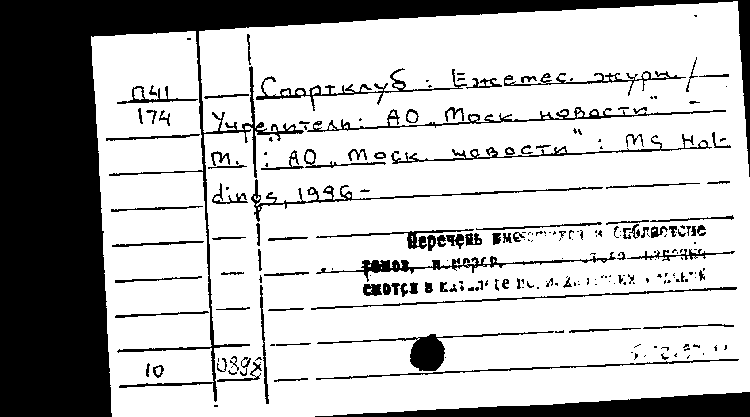 П41 Спортклуб : Ежемес. журн. /
174 Учредитель: АО „Моск. новости“ -
М. : АО „Моск. новости“ : MS Hol-
dings, 1996 -
Перечень имеющихся в библиотеке
томов,
смотри в каталоге
10 0898